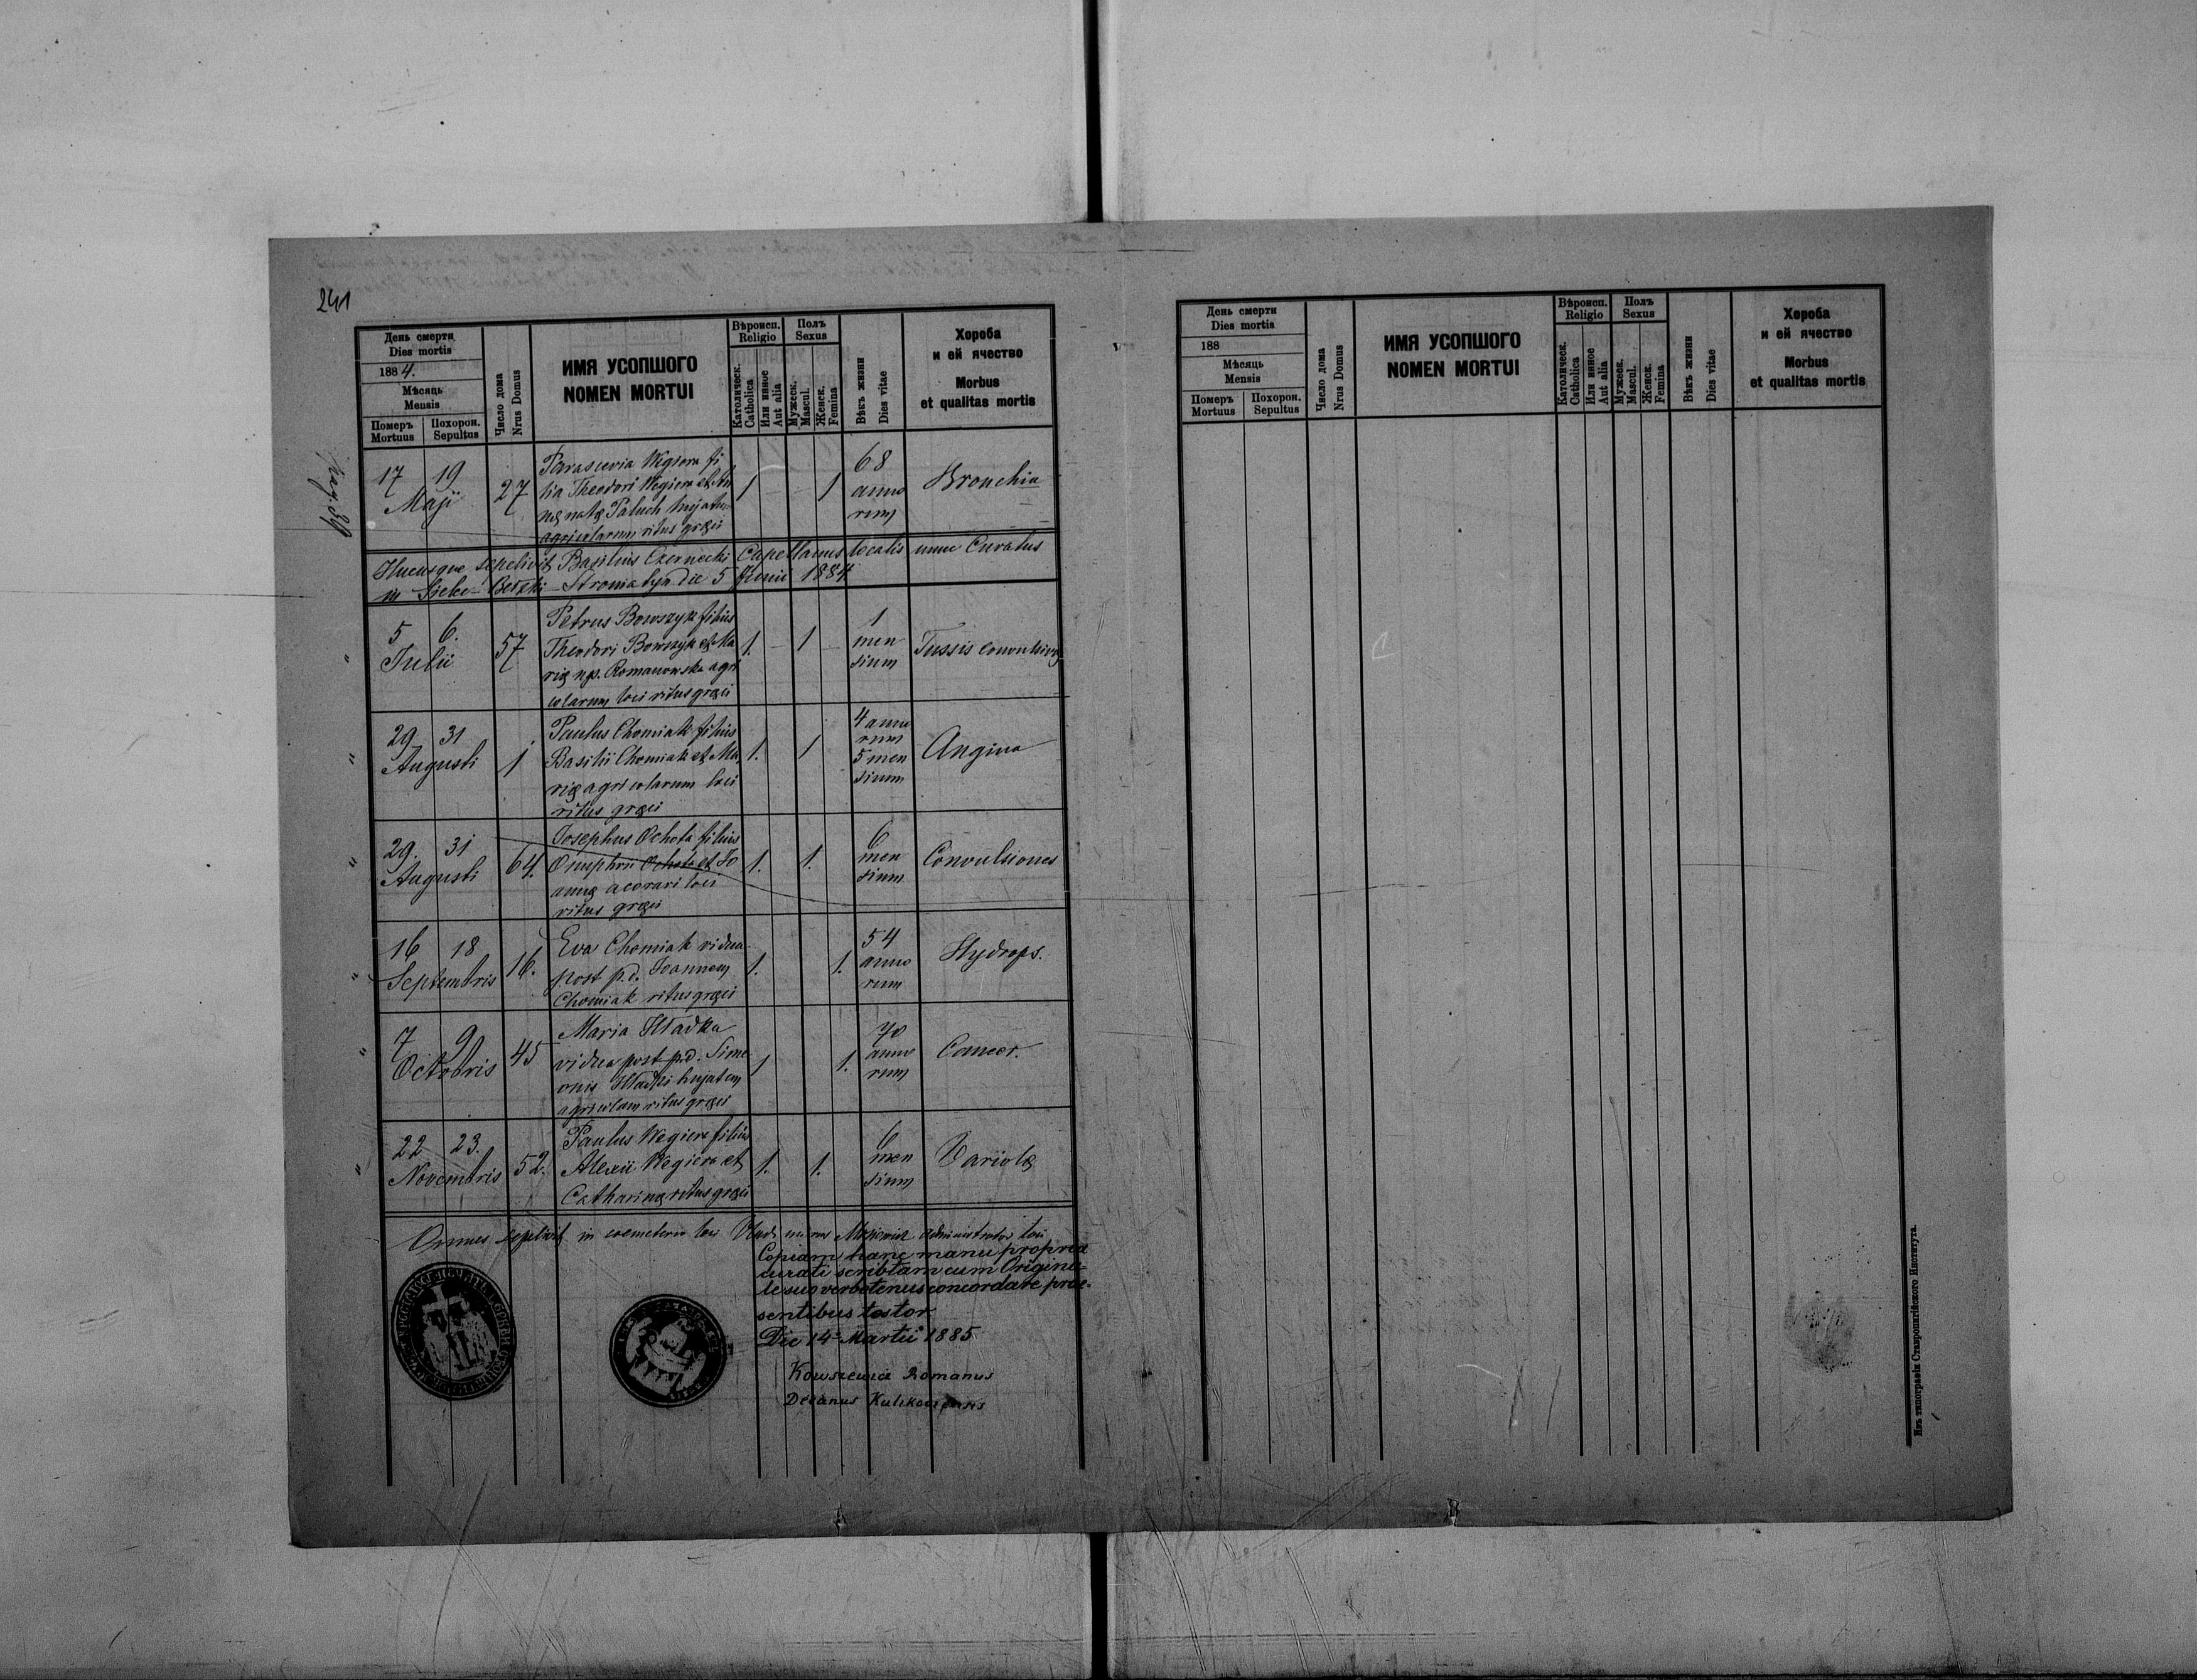 241
День смерти
Dies mortis
1884.
Мѣсяць
Mensis
Померъ
Mortuus
Похорон.
Sepultus
Число дома
Nrus Domus
ИМЯ УСОПШОГО
NOMEN MORTUI
Вѣроисп.
Religio
Католическ.
Catholica
Или инное
Aut alia
Полъ
Sexus
Мужеск.
Mascul.
Женск.
Femina
Вѣкъ жизни
Dies vitae
Хороба
и ей ячество
Morbus
et qualitas mortis
17 19
Maji
27
Parascevia Wegiera fi
lia Theodori Wegiera et An
næ natæ Paluch hujatum
agricolarum ritus græci
1 1
68
anno
rum
Bronchia
Hucusque sepelivit Basilius Czernecki Capellanus localis nunc Curatus
in Sielec-Bełzki - Stroniatyn die 5 Junii 1884
5 6.
Julii
57
Petrus Bowszyk filius
Theodori Bowszyk et Ma
riæ Romanowska agri
colarum loci ritus græci
1. 1
1
men
sium
Tussis convulsiva
29 31
Augusti
1
Paulus Chomiak filius
Basilii Chomiak et Ma
riæ agricolarum loci
ritus græci
1. 1
4 anno
rum
5 men
sium
Angina
29. 31
Augusti
64.
Josephus Ochota filius
Onuphrii Ochota et Jo
annæ loci
ritus græci
1. 1.
6
men
sium
Convulsiones
16 18
Septembris
16.
Eva Chomiak vidua
post p.d. Joannem
Chomiak ritus græci
1. 1.
54
anno
rum
Hydrops.
7 9
Octobris
45
Maria Hładka
vidua post p.d. Sime
onis Hładki hujatem
agricolam ritus græci
1 1.
70
anno
rum
Cancer.
22 23.
Novembris
52.
Paulus Wegiera filius
Alexii Wegiera et
Catharinæ ritus græci
1. 1.
6
men
sium
Variolæ
Omnes sepelivit in coemeterio loci administrator loci
Copiam hanc manu propria
curati scribtam cum Origina-
le suo verbotenus concordare præ-
sentibus testor
Die 14 Martii 1885
Kowszewicz Romanus
Decanus Kulikoviensis
День смерти
Dies mortis
188
Мѣсяць
Mensis
Померъ
Mortuus
Похорон.
Sepultus
Число дома
Nrus Domus
ИМЯ УСОПШОГО
NOMEN MORTUI
Вѣроисп.
Religio
Католическ.
Catholica
Или инное
Aut alia
Полъ
Sexus
Мужеск.
Mascul.
Женск.
Femina
Вѣкъ жизни
Dies vitae
Хороба
и ей ячество
Morbus
et qualitas mortis
Изъ типографіи Ставропигійского Института.